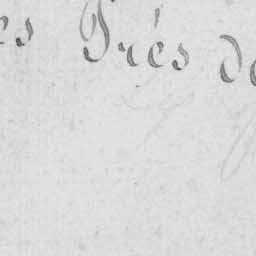 es Prés de